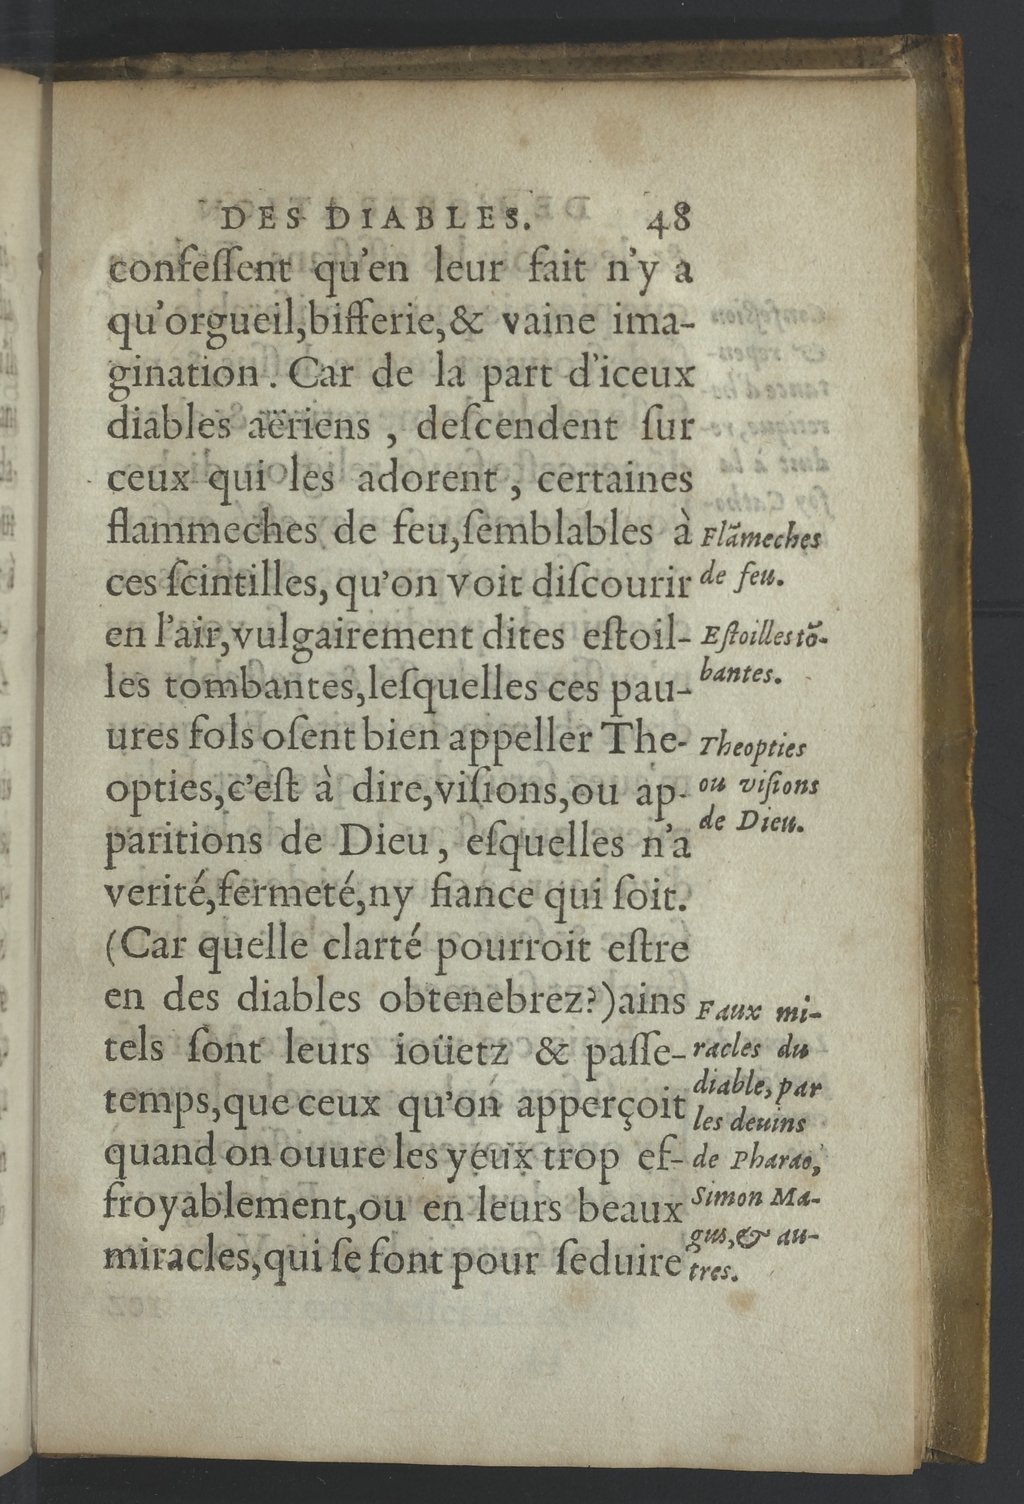 DES DIABLES. 48
confeſſent qu'en leur fait n'y a
qu'orgueil,bifferie,& vaine ima-
gination. Car de la part d'iceux
diables aëriens, deſcendent ſur
ceux qui les adorent, certaines
flammeches de feu,ſemblables à
ces ſcintilles, qu'on voit diſcourir
en l'air,vulgairement dites eſtoil-
les tombantes,leſquelles ces pau-
ures fols oſent bien appeller The-
opties,c'eſt à dire,viſions,ou ap-
paritions de Dieu, eſquelles n'a
verité,fermeté,ny fiance qui ſoit.
(Car quelle clarté pourroit eſtre
en des diables obtenebrez?)ains
tels ſont leurs ioüetz & paſſe-
temps,que ceux qu'on apperçoit
quand on ouure les yeux trop ef-
froyablement,ou en leurs beaux
miracles,qui ſe font pour ſeduire
Flãmeches
de feu.
Eſtoilles tõ-
bantes.
Theopties
ou viſions
de Dieu.
Faux mi-
racles du
diable, par
les deuins
de Pharao,
Simon Ma-
gus,& au-
tres.